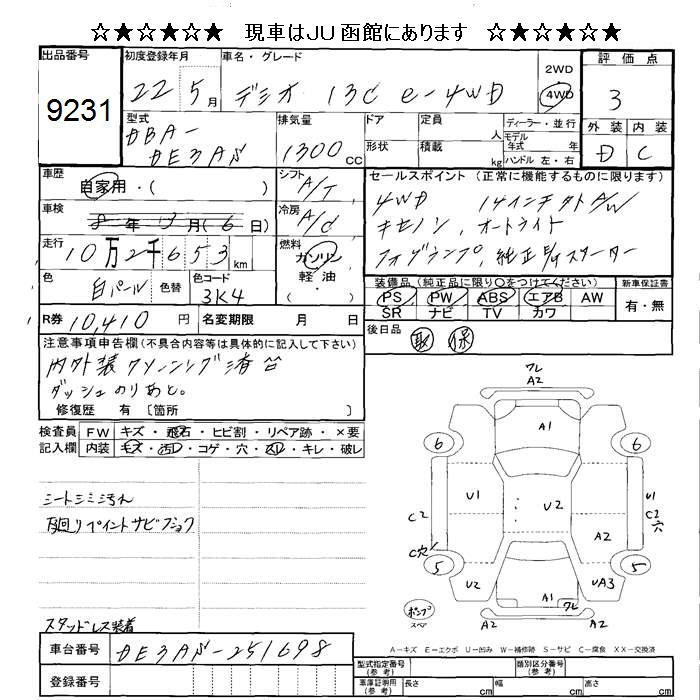 ☆★☆★☆★ 現車はJU函館にあります ☆★☆★☆★
出品番号
9231
初度登録年月
22 5月
車名・グレード
デミオ 13C e-4WD
2WD
4WD
評価点
3
外装 内装
D C
型式
DBA-
DE3AS
排気量
1300 cc
ドア
形状
定員 人
積載 kg
ディーラー・並行
モデル年式 年式
ハンドル 左・右
車歴
自家用・( )
シフト
A/T
セールスポイント (正常に機能するものに限ります)
4WD 14インチ A/W
キセノン, オートライト
フォグランプ, 純正 スターター
車検
年 月(6日)
冷房
A/C
走行
10万2千653km
燃料
ガソリン
・
軽油
( )
色
白パール
色替
色コード
3K4
装備品 (純正品に限り○をつけてください)
PS PW ABS エアB AW
SR ナビ TV カワ
新車保証書
有・無
R券 10,410円
名変期限 月 日
後日品
取 保
注意事項申告欄(不具合内容等は具体的に記入して下さい)
内外装クリーニング済
ダッシュのりあと。
修復歴 有 〔箇所 〕
検査員記入欄
FW キズ・飛石・ヒビ割・リペア跡・×要
内装 キズ・汚レ・コゲ・穴・スレ・キレ・破レ
シートシミ汚れ
下回りペイントサビフショク
スタッドレス装着
ワレ
A2
A1
6 6
U1 U2 U1
C2 C2
穴
A2
C穴
5 5
U2 UA3
A1 ワレ
A2 A2
ポンプ
スペア
A-キズ E-エクボ U-凹み W-補修跡 S-サビ C-腐食 XX-交換済
車台番号
DE3AS-251698
登録番号
型式指定番号(参考)
類別区分番号(参考)
車庫証明用(参考) 長さ cm 幅 cm 高さ cm